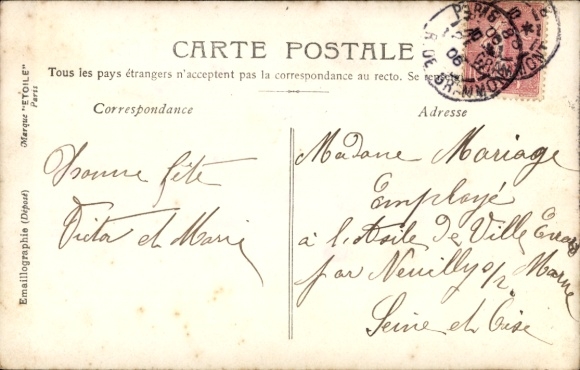 CARTE POSTALE
Tous les pays étrangers n'acceptent pas la correspondance au recto. Se
Correspondance
Adresse
Bonne fête
Victor et Marie
Madame Mariage
Employé
à l'Asile de Ville Evrard
par Neuilly s/ Marne
Seine et Oise
Emaillographie (Déposé) Marque "ETOILE" Paris
PARIS
R. DE GRAMMONT